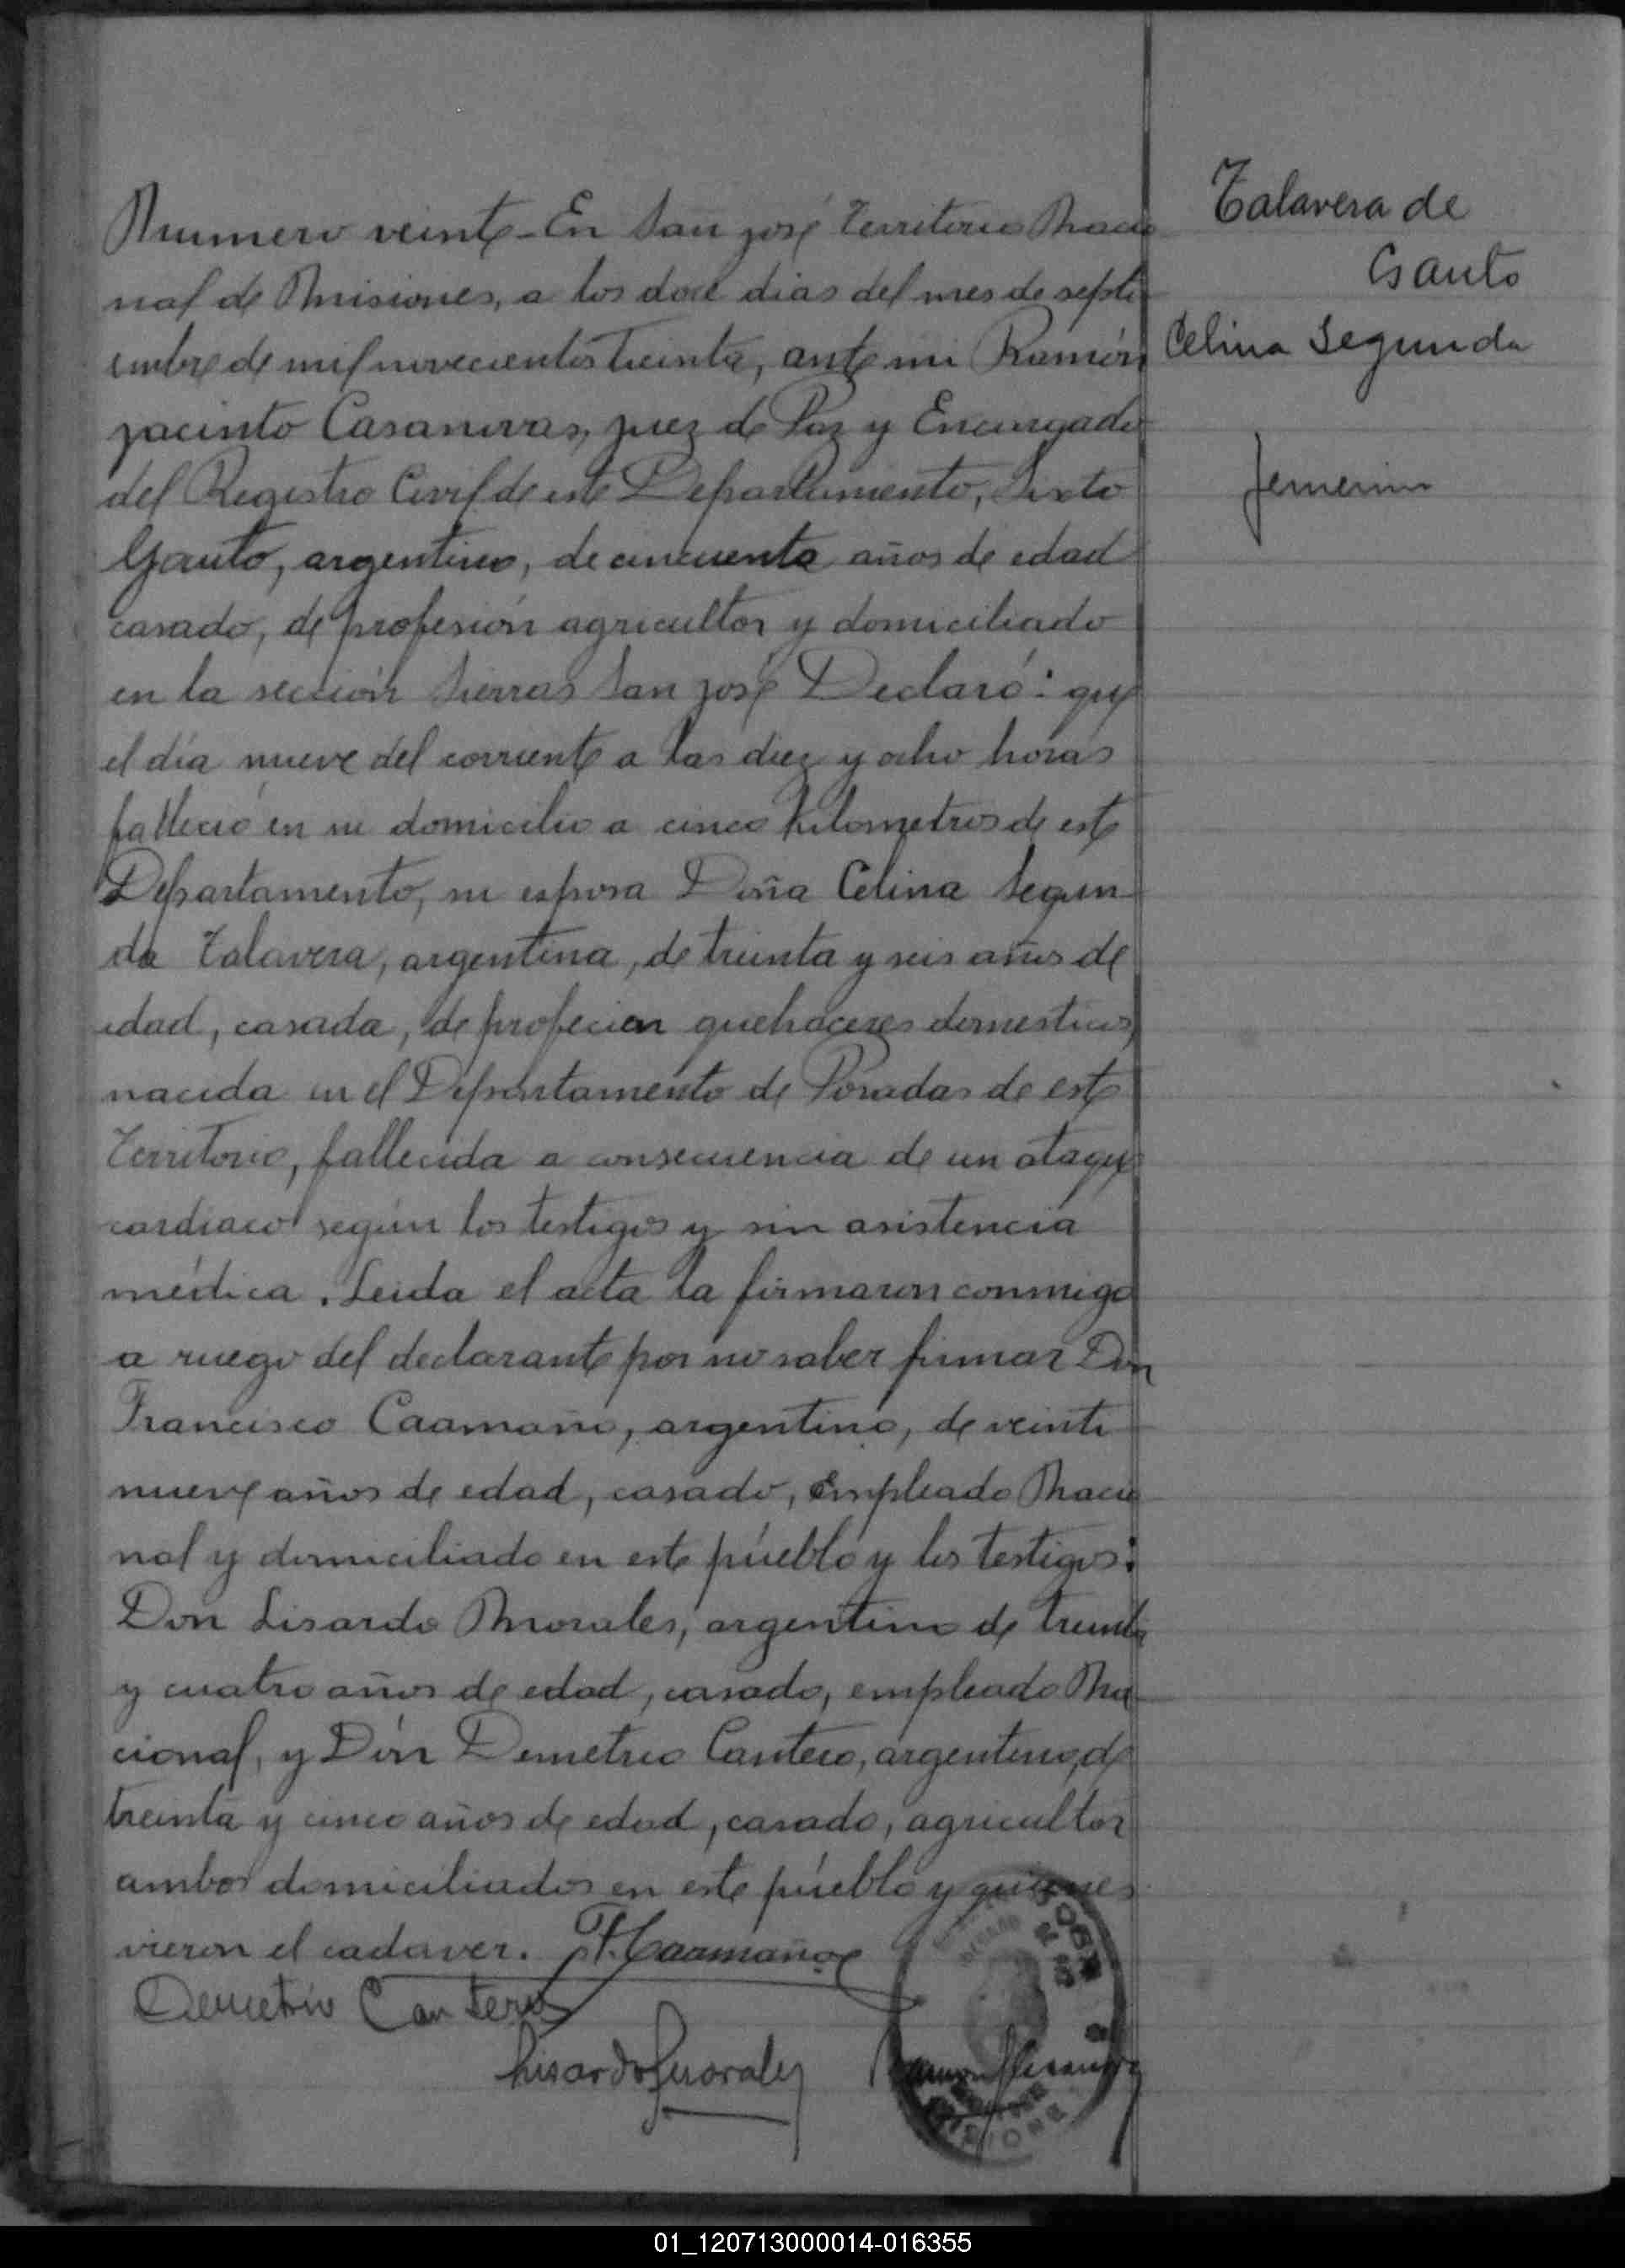 Numero veinte - En San José Territorio Nacio
nal de Misiones, a los doce dias del mes de septi
embre de mil novecientos treinta, ante mi Ramón
Jacinto Casanovas, Juez de Paz y Encargado
del Registro Civil de este Departamento, Sixto
Gauto, argentino, de cincuenta años de edad
casado, de profesión agricultor y domiciliado
en la sección Sierras San José Declaró: que
el día nueve del corriente a las diez y ocho horas
falleció en su domicilio a cinco kilometros de este
Departamento, su esposa Doña Celina Segun
da Talavera, argentina, de treinta y seis años de
edad, casada, de profecion quehaceres domesticos,
nacida en el Departamento de Posadas de este
Territorio, fallecida a consecuencia de un ataque
cardiaco según los testigos y sin asistencia
médica. Leida el acta la firmaron conmigo
a ruego del declarante por no saber firmar Don
Francisco Caamaño, argentino, de veinti
nueve años de edad, casado, Empleado Nacio
nal y domiciliado en este pueblo y los testigos:
Don Lisardo Morales, argentino de treinta
y cuatro años de edad, casado, empleado Na
cional, y Dón Demetrio Cantero, argentino, de
treinta y cinco años de edad, casado, agricultor
ambos domiciliados en este pueblo y quienes
vieron el cadaver. F. Caamaño
Demetrio Cantero
Lisardo Morales
Talavera de
Gauto
Celina Segunda
femenino
01_120713000014-016355